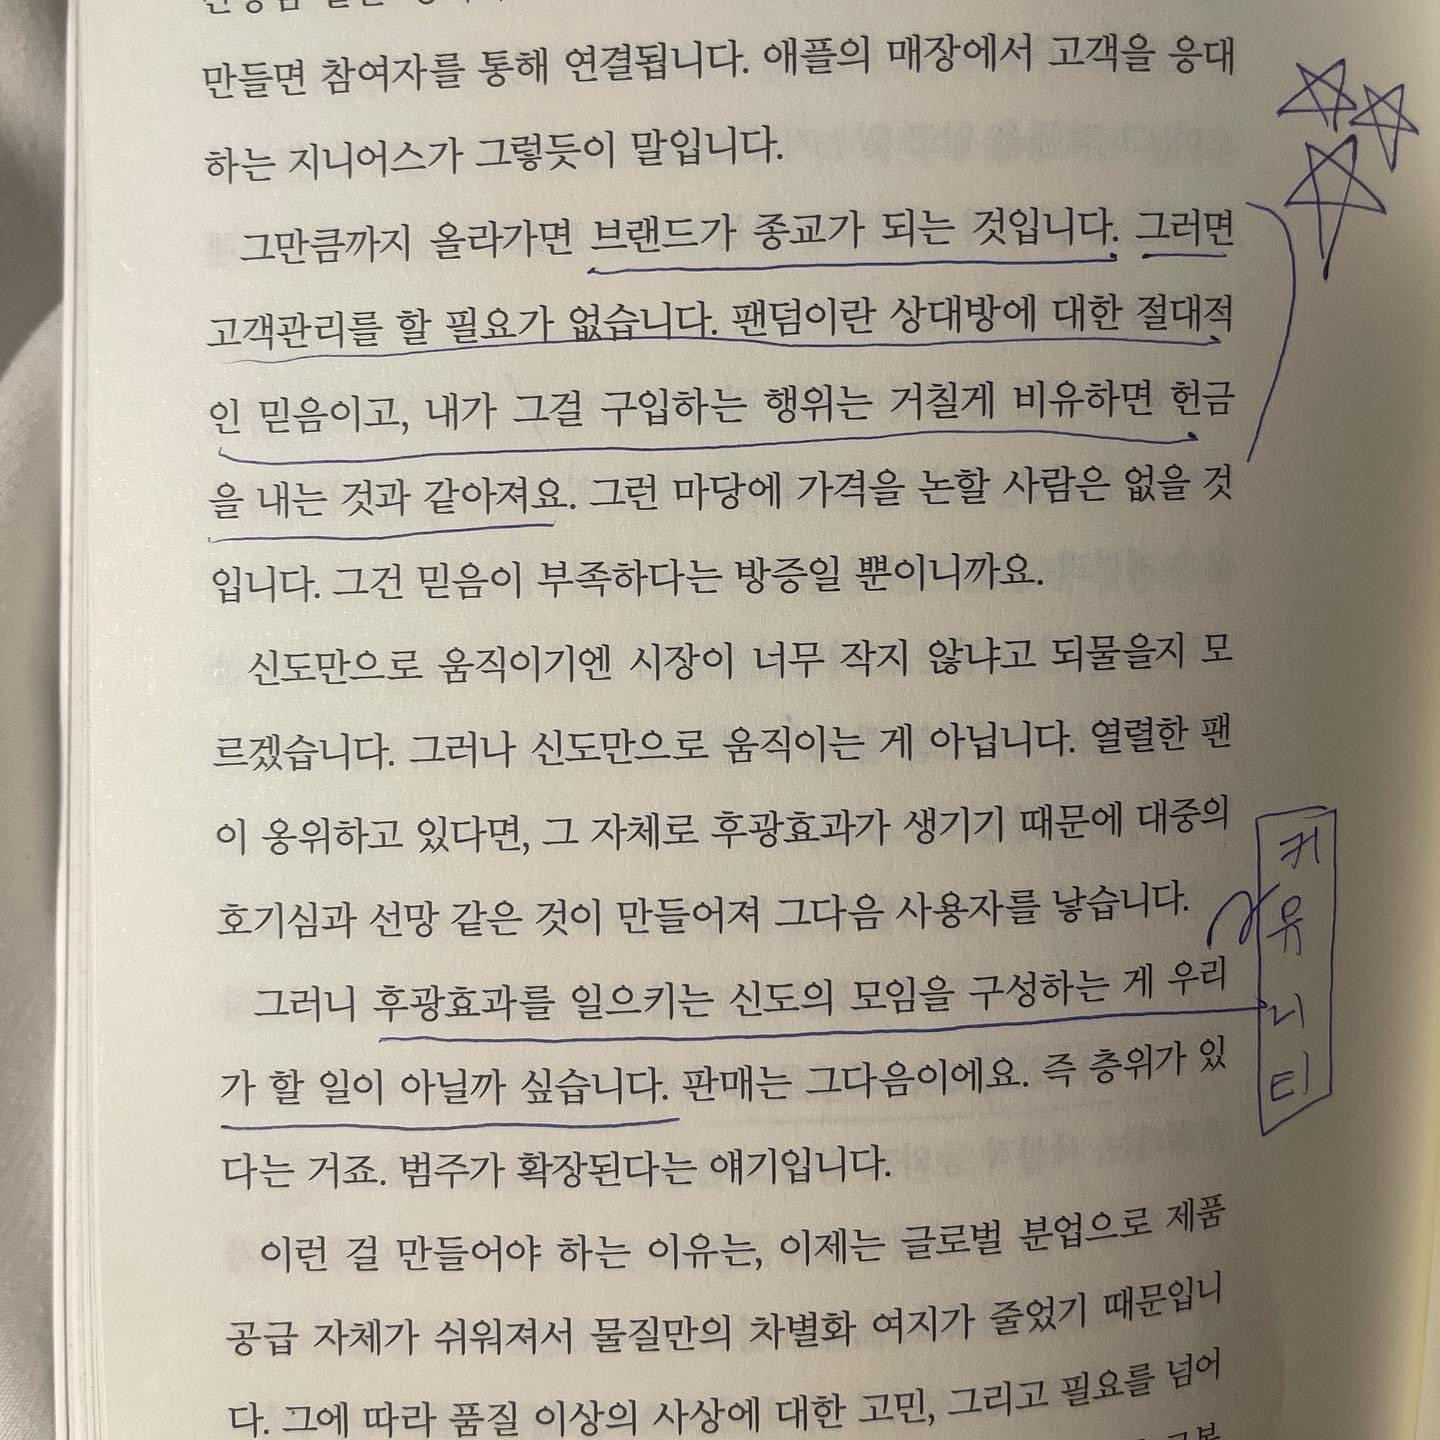 만들면 참여자를 통해 연결됩니다. 애플의 매장에서 고객을 응대
하는 지니어스가 그렇듯이 말입니다.
그만큼까지 올라가면 브랜드가 종교가 되는 것입니다. 그러면
고객관리를 할 필요가 없습니다. 팬덤이란 상대방에 대한 절대적
인 믿음이고, 내가 그걸 구입하는 행위는 거칠게 비유하면 헌금
을 내는 것과 같아져요. 그런 마당에 가격을 논할 사람은 없을 것
입니다. 그건 믿음이 부족하다는 방증일 뿐이니까요.
신도만으로 움직이기엔 시장이 너무 작지 않냐고 되물을지 모
르겠습니다. 그러나 신도만으로 움직이는 게 아닙니다. 열렬한 팬
이 옹위하고 있다면, 그 자체로 후광효과가 생기기 때문에 대중의
호기심과 선망 같은 것이 만들어져 그다음 사용자를 낳습니다.
그러니 후광효과를 일으키는 신도의 모임을 구성하는 게 우리
가 할 일이 아닐까 싶습니다. 판매는 그다음이에요. 즉 층위가 있
다는 거죠. 범주가 확장된다는 얘기입니다.
이런 걸 만들어야 하는 이유는, 이제는 글로벌 분업으로 제품
공급 자체가 쉬워져서 물질만의 차별화 여지가 줄었기 때문입니
다. 그에 따라 품질 이상의 사상에 대한 고민, 그리고 필요를 넘어
커
유
니
티